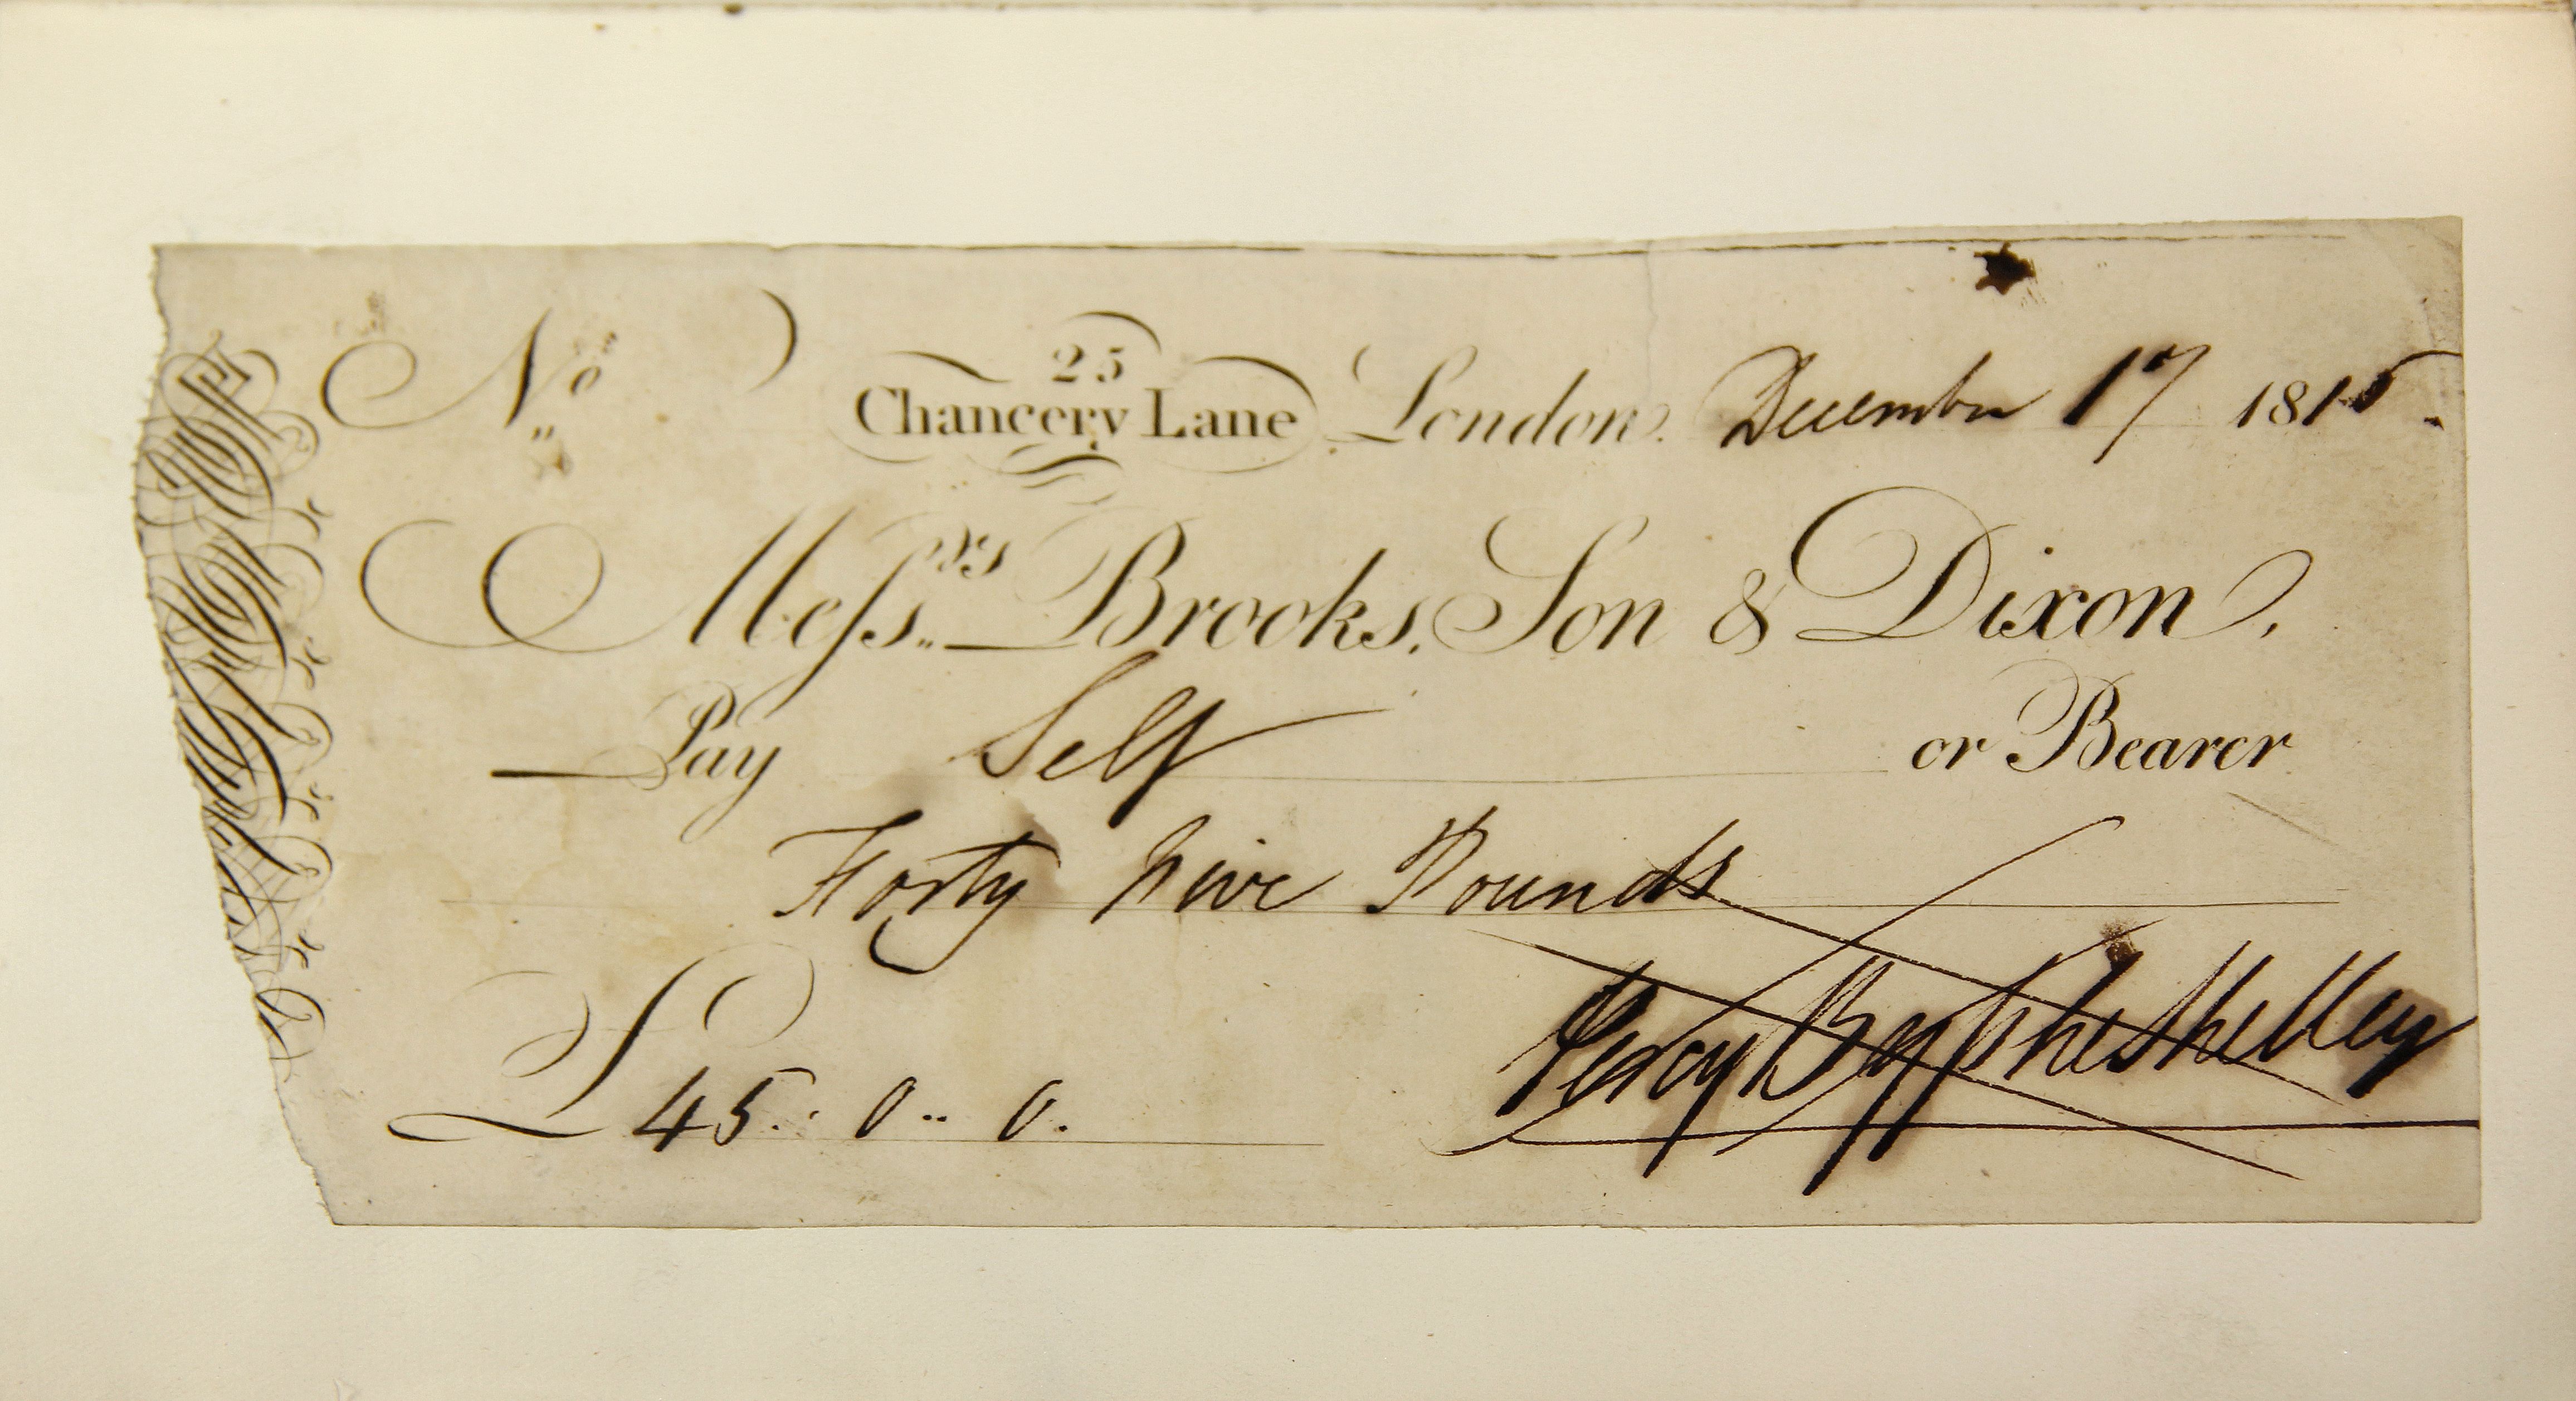 No
25
Chancery Lane London. December 17 1815.
Messrs Brooks, Son & Dixon,
Pay Self or Bearer
Forty five Pounds
£45. 0.. 0.
Percy Bysshe Shelley